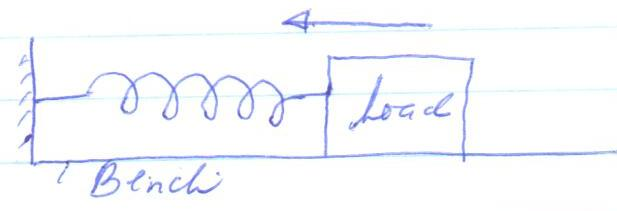 Load
Bench